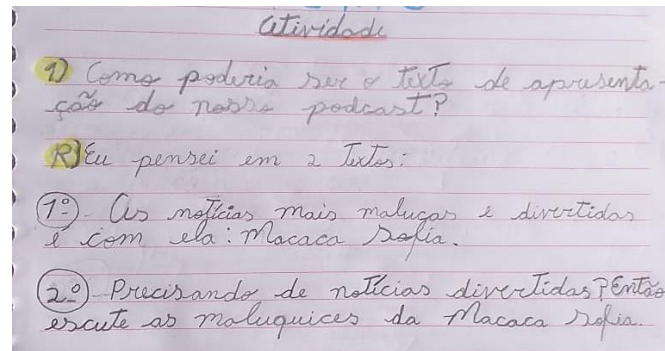 Atividade
1) Como poderia ser o texto de apresenta-
ção do nosso podcast?
R) Eu pensei em 2 Textos:
1º) - As notícias mais malucas e divertidas
é com ela: Macaca Sofia.
2º) - Precisando de notícias divertidas? Então
escute as maluquices da Macaca Sofia.